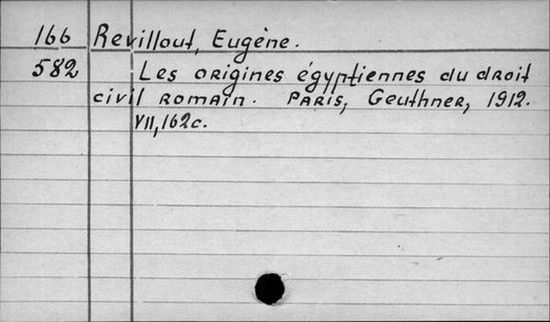 166 Revillout, Eugène.
582 Les origines égyptiennes du droit
civil romain. Paris, Geuthner, 1912.
VII, 162c.